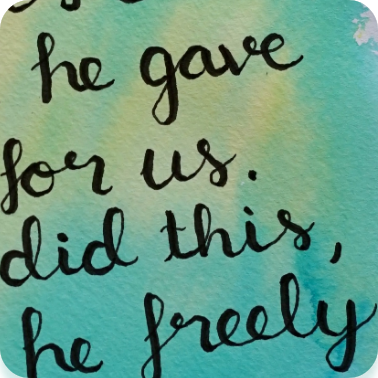 he gave
for us.
did this,
he freely